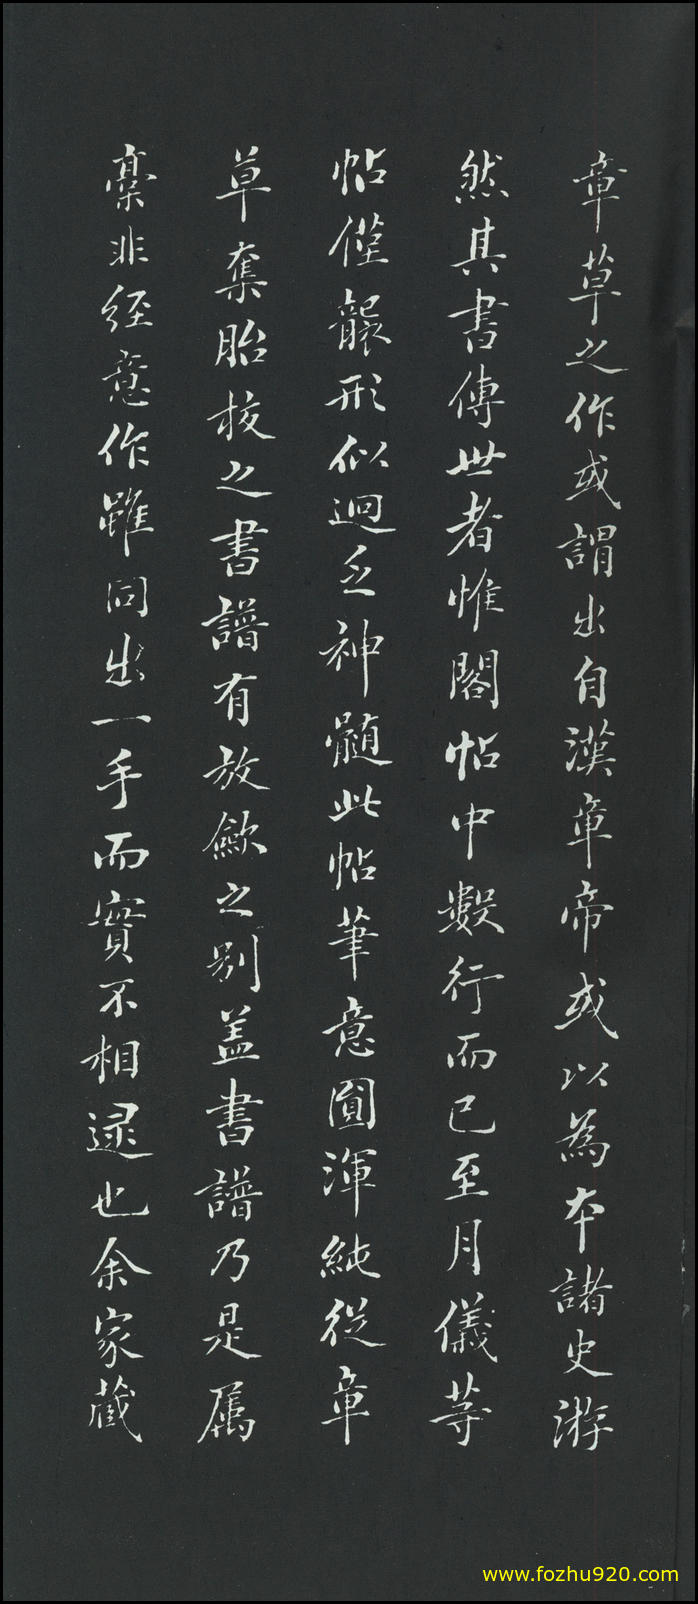 章草之作或謂出自漢章帝或以為本諸史游
然其書傳世者惟閣帖中數行而已至月儀等
帖僅襲形似迥乏神髓此帖筆意圓渾純從章
草奪胎校之書譜有放斂之別蓋書譜乃是屬
稾非經意作雖同出一手而實不相逮也余家藏
www.fozhu920.com